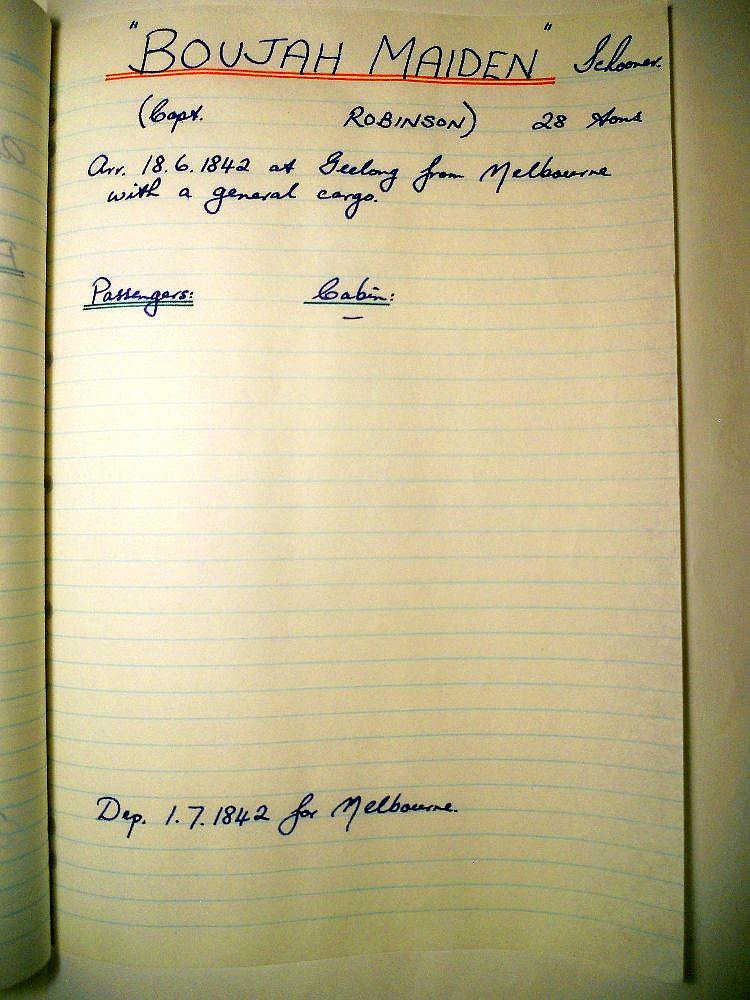 "BOUJAH MAIDEN" Schooner.
(Capt. ROBINSON) 28 tons
Arr. 18.6.1842 at Geelong from Melbourne
with a general cargo.
Passengers: Cabin:
–
Dep. 1.7.1842 for Melbourne.